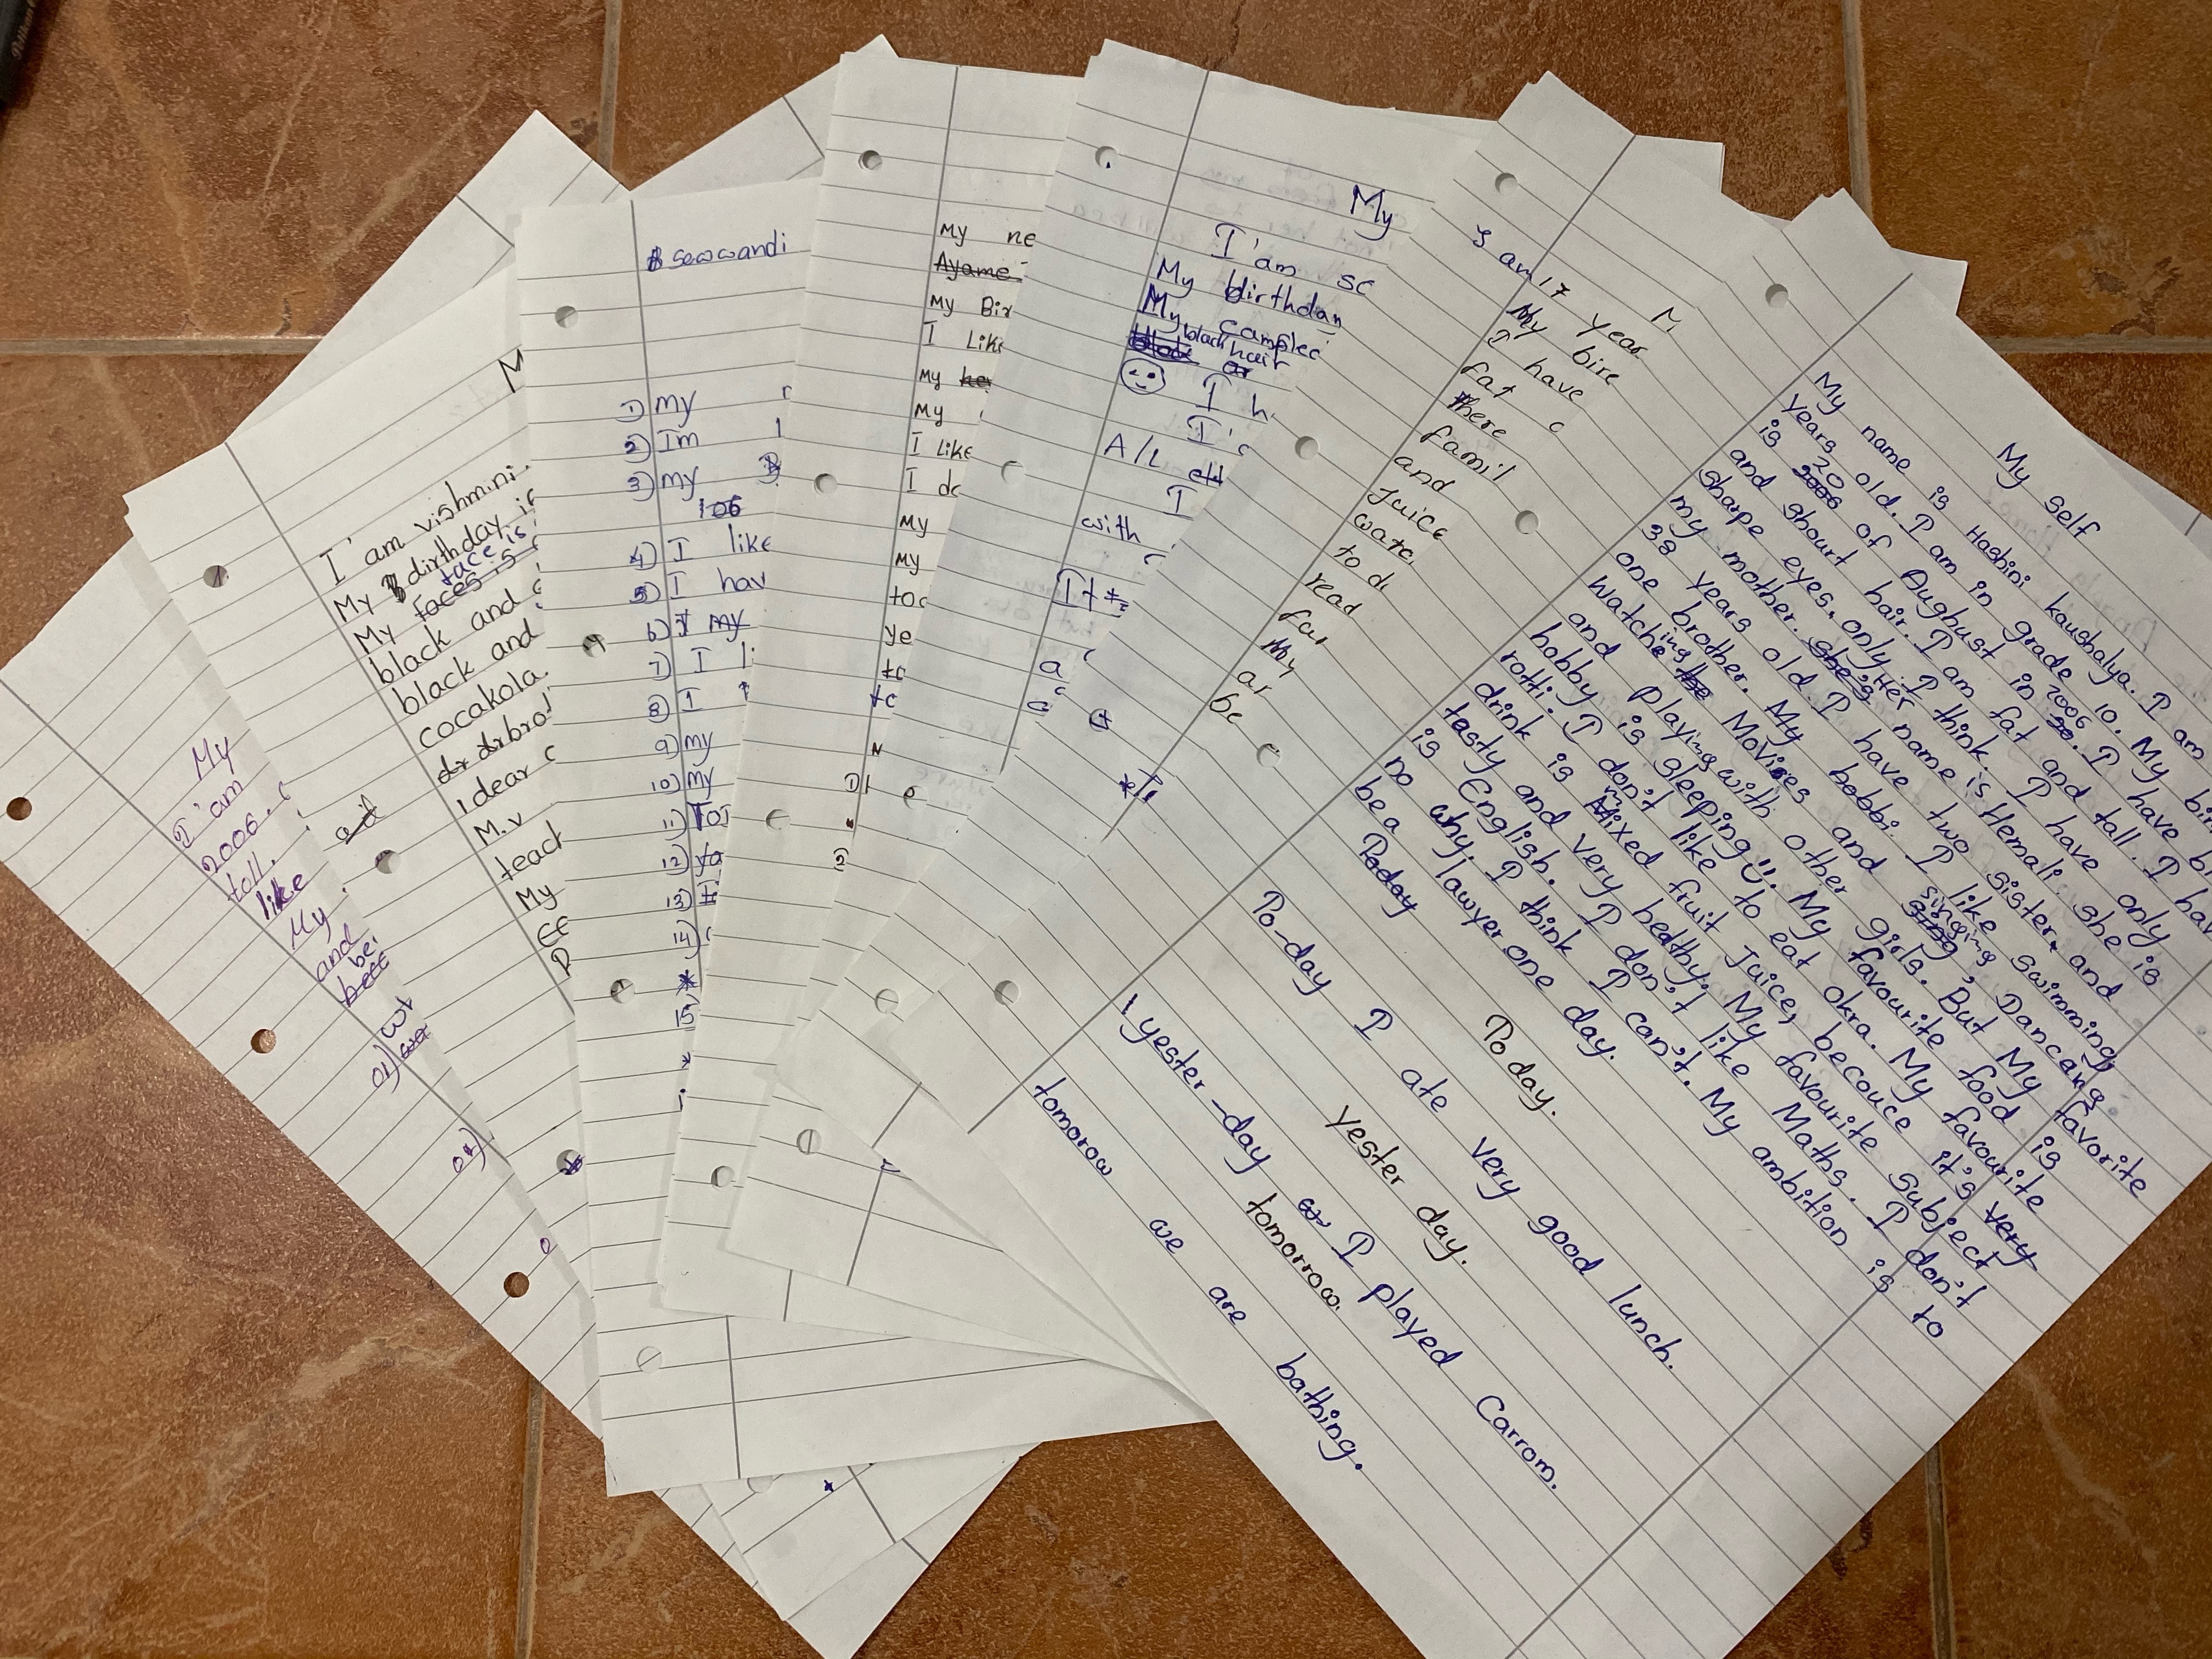 My
I'am
2006.
tall.
like
My
and
be
01)
02)
I'am vishmini.
My dirthday is
face is
My faces is
black and
black and
cocakola.
bro
I dear
M.v
teach
My
sewwandi
1) My
2) Im
3) my
106
4) I like
5) I hav
6) I my
7) I li
8) I
9) my
10) my
11)
12)
13)
14)
15
My ne
Ayame
My Bir
I Like
My
My
I Like
I do
My
My
too
ye
to
to
My
I'am sc
My birthday
My complec
black hair
or
I h
I'
A/L
I
with
It
a
M
I am 17 year
My bire
I have
fat
there
famil
and
Juice
wate
to d
read
fav
My
ar
be
My self
My name is Hashini kaushalya. I am
years old. I am in grade 10. My bir
is 20 2006 of Aughust in 2006. I have bl
and shourt hair. I am fat and tall. I hav
sharpe eyes. only I think. I have only
my mother. she's Her name is Hemali. she is
38 years old. I have two sister and
one brother. My bobbi. I like swimming,
Watching the Movies and singing, Dancang.
and playing with other girls. But My favorite
hobby is sleeping. My favourite food is
rotti. I don't like to eat okra. My favourite
drink is Mixed fruit Juice, becouce it's very
tasty and very healthy. My favourite subject
is English. I don't like Maths. I don't
no why. I think I can't. My ambition is to
be a lawyer one day.
Poday
Poday.
Po-day I ate very good lunch.
Yester day.
yester-day I played Carrom.
tomorrow.
tomorow we are bathing.